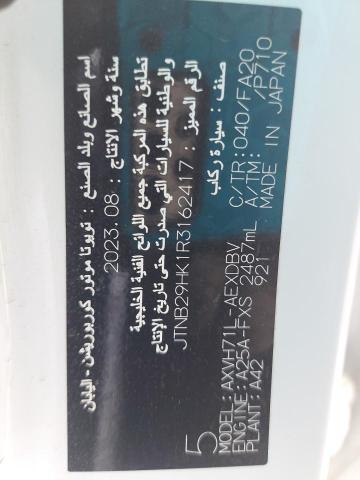 اسم الصانع وبلد الصنع : تويوتا موتور كوربوريشن - اليابان
سنة وشهر الانتاج : 2023.08
تطابق هذه المركبة جميع اللوائح الفنية الخليجية
والوطنية للسيارات التي صدرت حتى تاريخ الإنتاج
الرقم المميز : JTNB29HK1R3162417
صنف : سيارة ركاب
5
MODEL: AXVH71L-AEXDBV C/TR: 040/FA20
ENGINE: A25A-FXS 2487mL A/TM: /P710
PLANT: A42 921 MADE IN JAPAN